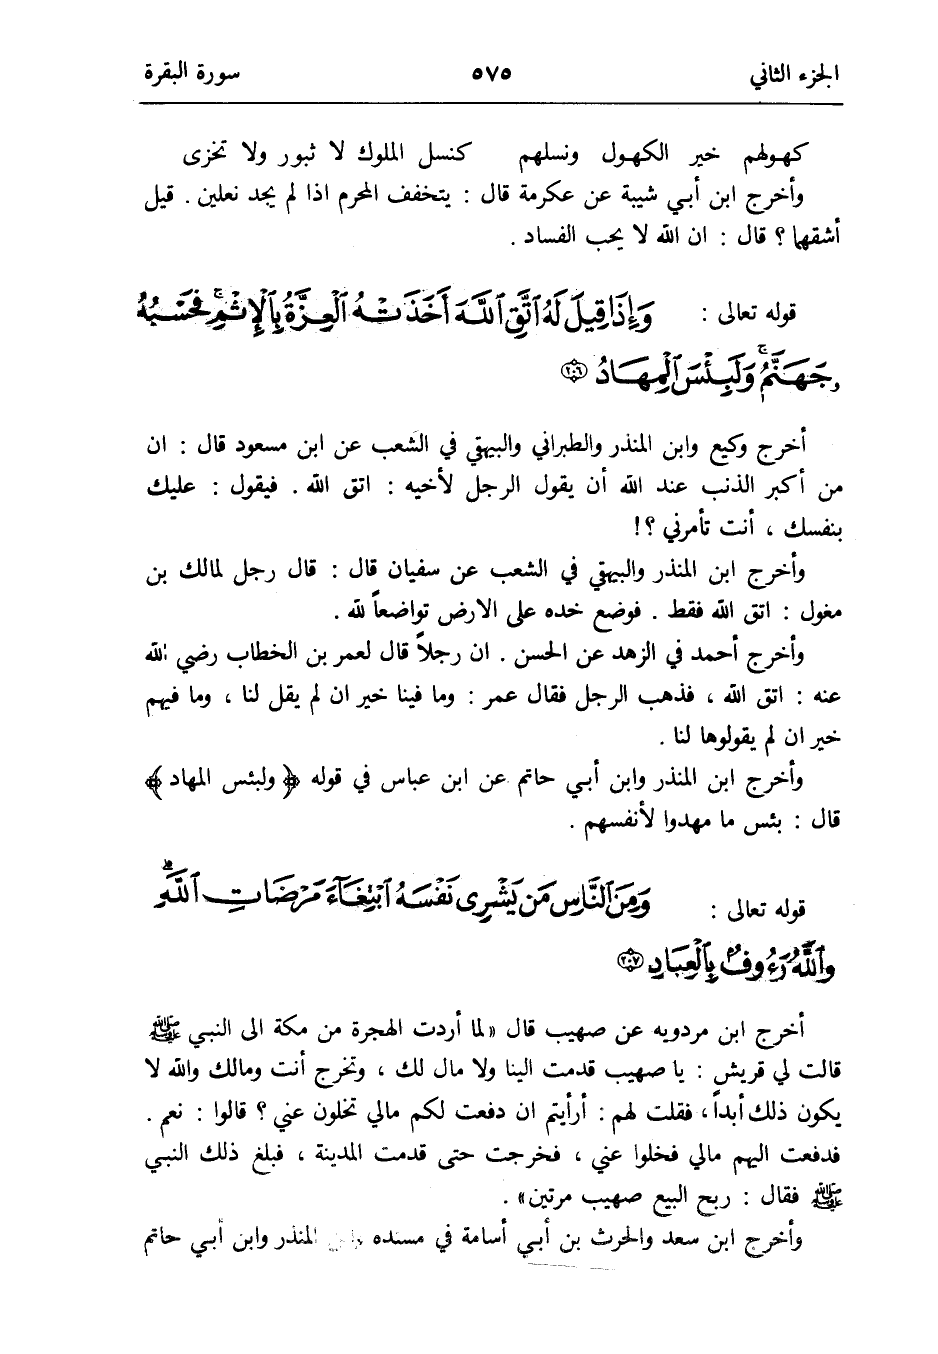 الجزء الثاني ٥٧٥ سورة البقرة
كهولهم خير الكهول ونسلهم كنسل الملوك لا ثبور ولا تخزى
وأخرج ابن أبي شيبة عن عكرمة قال : يتخفف المحرم اذا لم يجد نعلين . قيل
أشقهما ؟ قال : ان الله لا يحب الفساد .
قوله تعالى : وَإِذَا قِيلَ لَهُ اتَّقِ اللَّهَ أَخَذَتْهُ الْعِزَّةُ بِالْإِثْمِ ۚ فَحَسْبُهُ
جَهَنَّمُ ۚ وَلَبِئْسَ الْمِهَادُ ۝٢٠٦
أخرج وكيع وابن المنذر والطبراني والبيهقي في الشعب عن ابن مسعود قال : ان
من أكبر الذنب عند الله أن يقول الرجل لأخيه : اتق الله . فيقول : عليك
بنفسك ، أنت تأمرني ؟!
وأخرج ابن المنذر والبيهقي في الشعب عن سفيان قال : قال رجل لمالك بن
مغول : اتق الله فقط . فوضع خده على الارض تواضعاً لله .
وأخرج أحمد في الزهد عن الحسن . ان رجلاً قال لعمر بن الخطاب رضي الله
عنه : اتق الله ، فذهب الرجل فقال عمر : وما فينا خير ان لم يقل لنا ، وما فيهم
خير ان لم يقولوها لنا .
وأخرج ابن المنذر وابن أبي حاتم عن ابن عباس في قوله ﴿ ولبئس المهاد ﴾
قال : بئس ما مهدوا لأنفسهم .
قوله تعالى : وَمِنَ النَّاسِ مَن يَشْرِى نَفْسَهُ ابْتِغَآءَ مَرْضَاتِ اللَّهِ ۗ
وَاللَّهُ رَءُوفٌ بِالْعِبَادِ ۝٢٠٧
أخرج ابن مردويه عن صهيب قال «لما أردت الهجرة من مكة الى النبي ﷺ
قالت لي قريش : يا صهيب قدمت الينا ولا مال لك ، وتخرج أنت ومالك والله لا
يكون ذلك أبداً ، فقلت لهم : أرأيتم ان دفعت لكم مالي تخلون عني ؟ قالوا : نعم .
فدفعت اليهم مالي فخلوا عني ، فخرجت حتى قدمت المدينة ، فبلغ ذلك النبي
ﷺ فقال : ربح البيع صهيب مرتين» .
وأخرج ابن سعد والحرث بن أبي أسامة في مسنده وابن المنذر وابن أبي حاتم